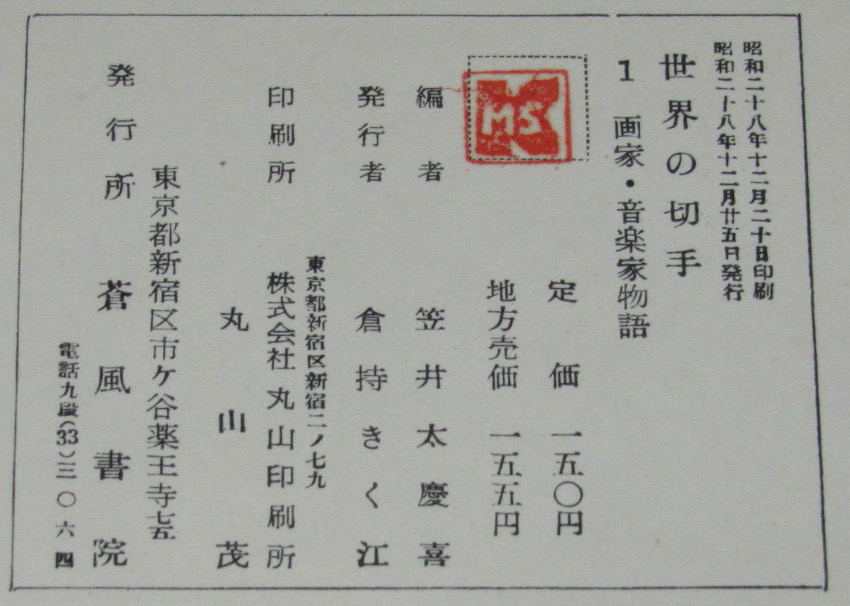 昭和二十八年十二月二十日印刷
昭和二十八年十二月廿五日発行
世界の切手
1 画家・音楽家物語
定価 一五〇円
地方売価 一五五円
MS
編者 笠井太慶喜
発行者 倉持きく江
東京都新宿区新宿二ノ七九
印刷所 株式会社丸山印刷所
丸山茂
東京都新宿区市ケ谷薬王寺七五
発行所 蒼風書院
電話九段(33)三〇六四